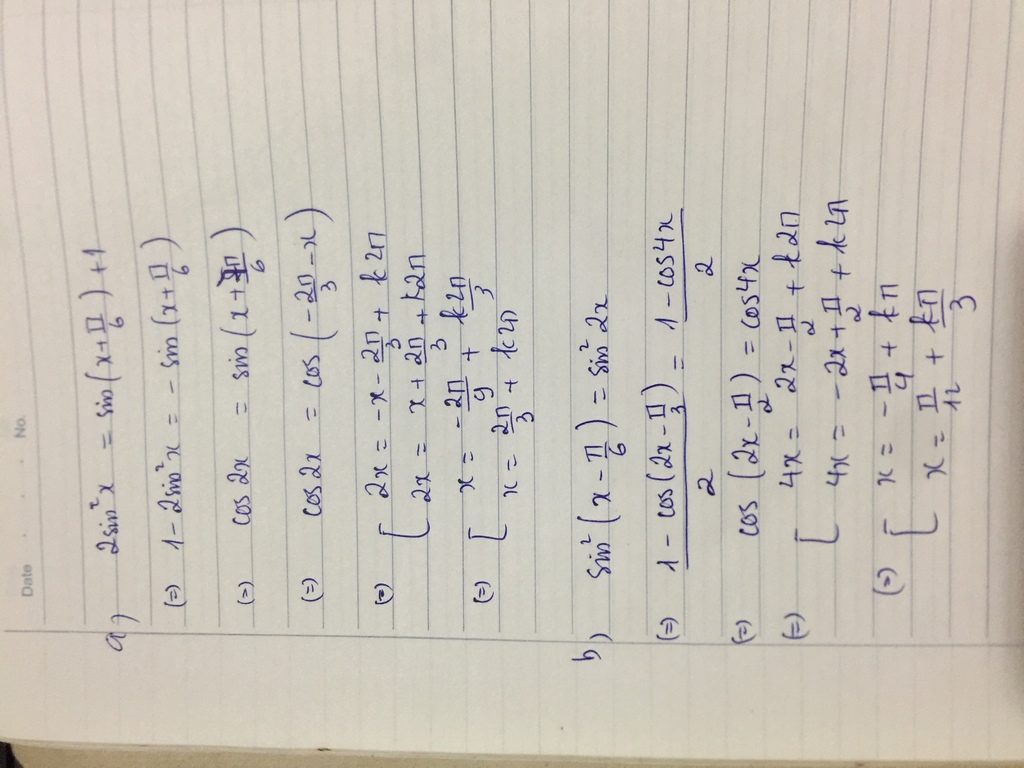 Date . . . No.
a) 2sin²x = sin(x+π/6) +1
(=) 1 - 2sin²x = - sin(x+π/6)
(=) cos 2x = sin(x+7π/6)
(=) cos2x = cos(-2π/3 - x)
(=) [ 2x = -x - 2π/3 + k2π
2x = x + 2π/3 + k2π
(=) [ x = -2π/9 + k2π/3
x = 2π/3 + k2π
b) sin²(x - π/6) = sin² 2x
(=) (1 - cos(2x - π/3))/2 = (1 - cos4x)/2
(=) cos (2x - π/2) = cos4x
(=) [ 4x = 2x - π/2 + k2π
4x = -2x + π/2 + k2π
(=) [ x = -π/4 + kπ
x = π/12 + kπ/3